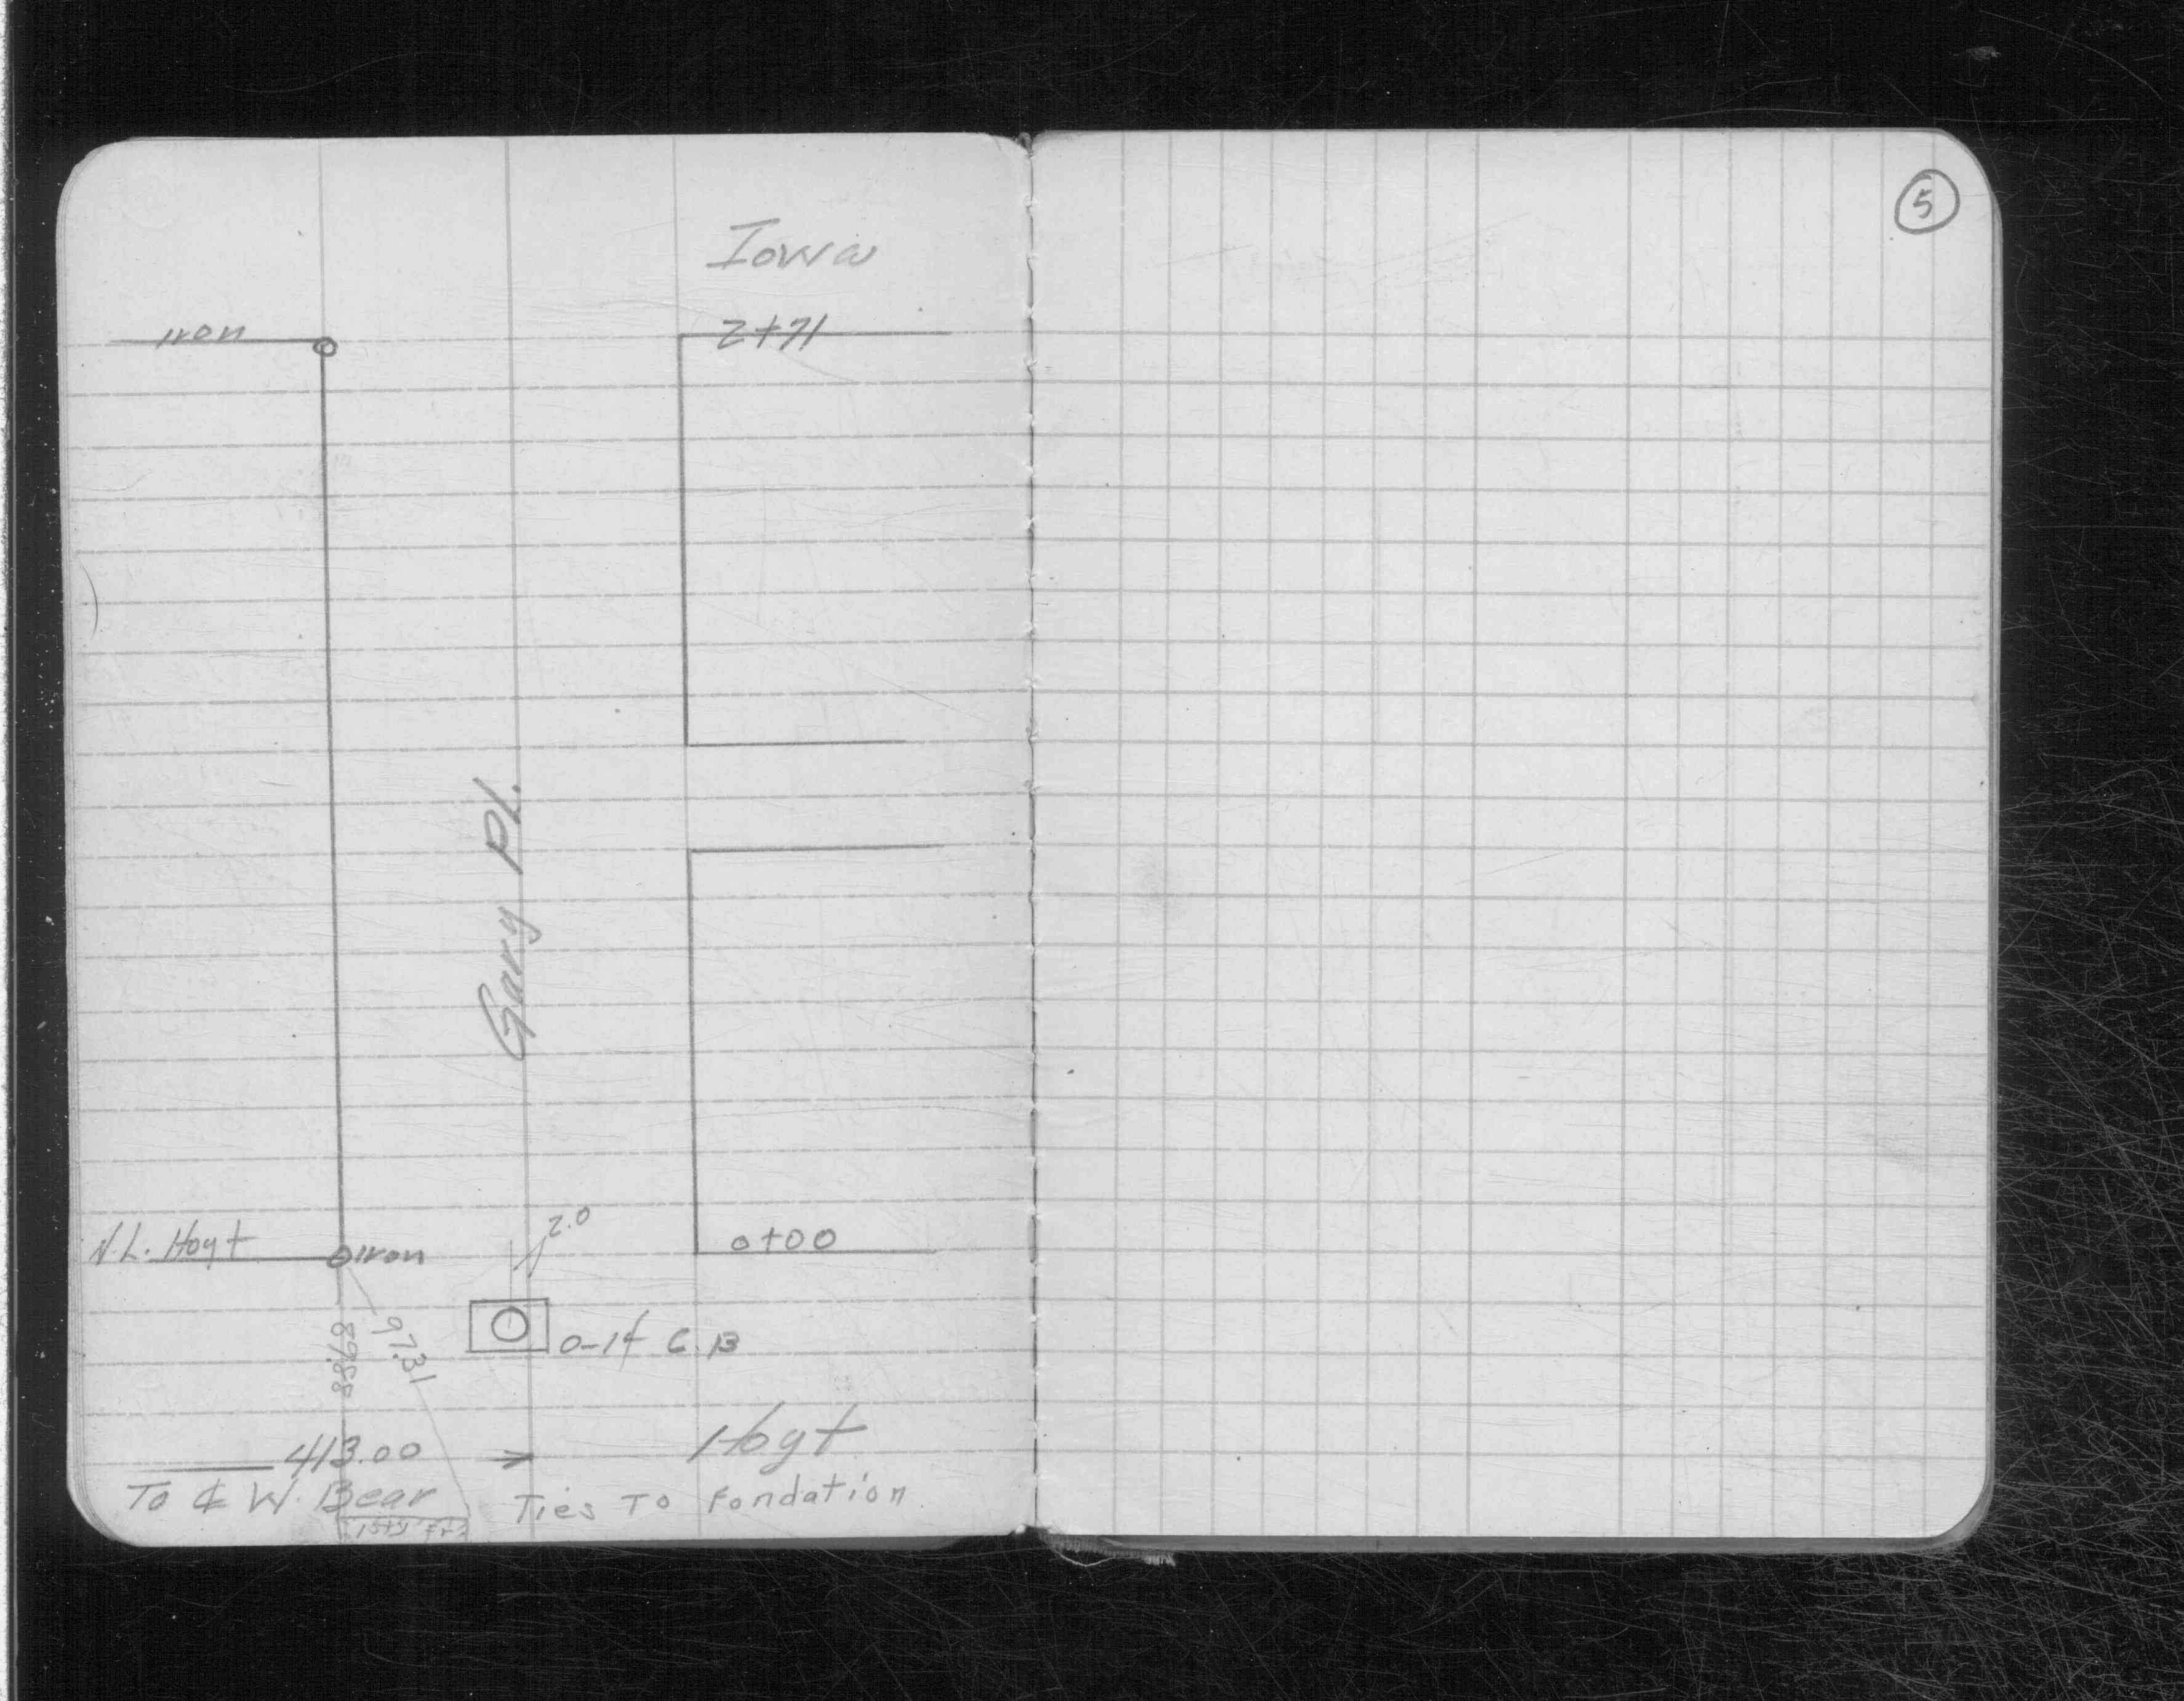 5
Iowa
Iron
2+71
Gary Pl.
2.0
N.L. Hoyt
Iron
0+00
89.88
97.31
0-14 C.B
413.00
Hoyt
To ℄ W. Bear
Ties To Fondation